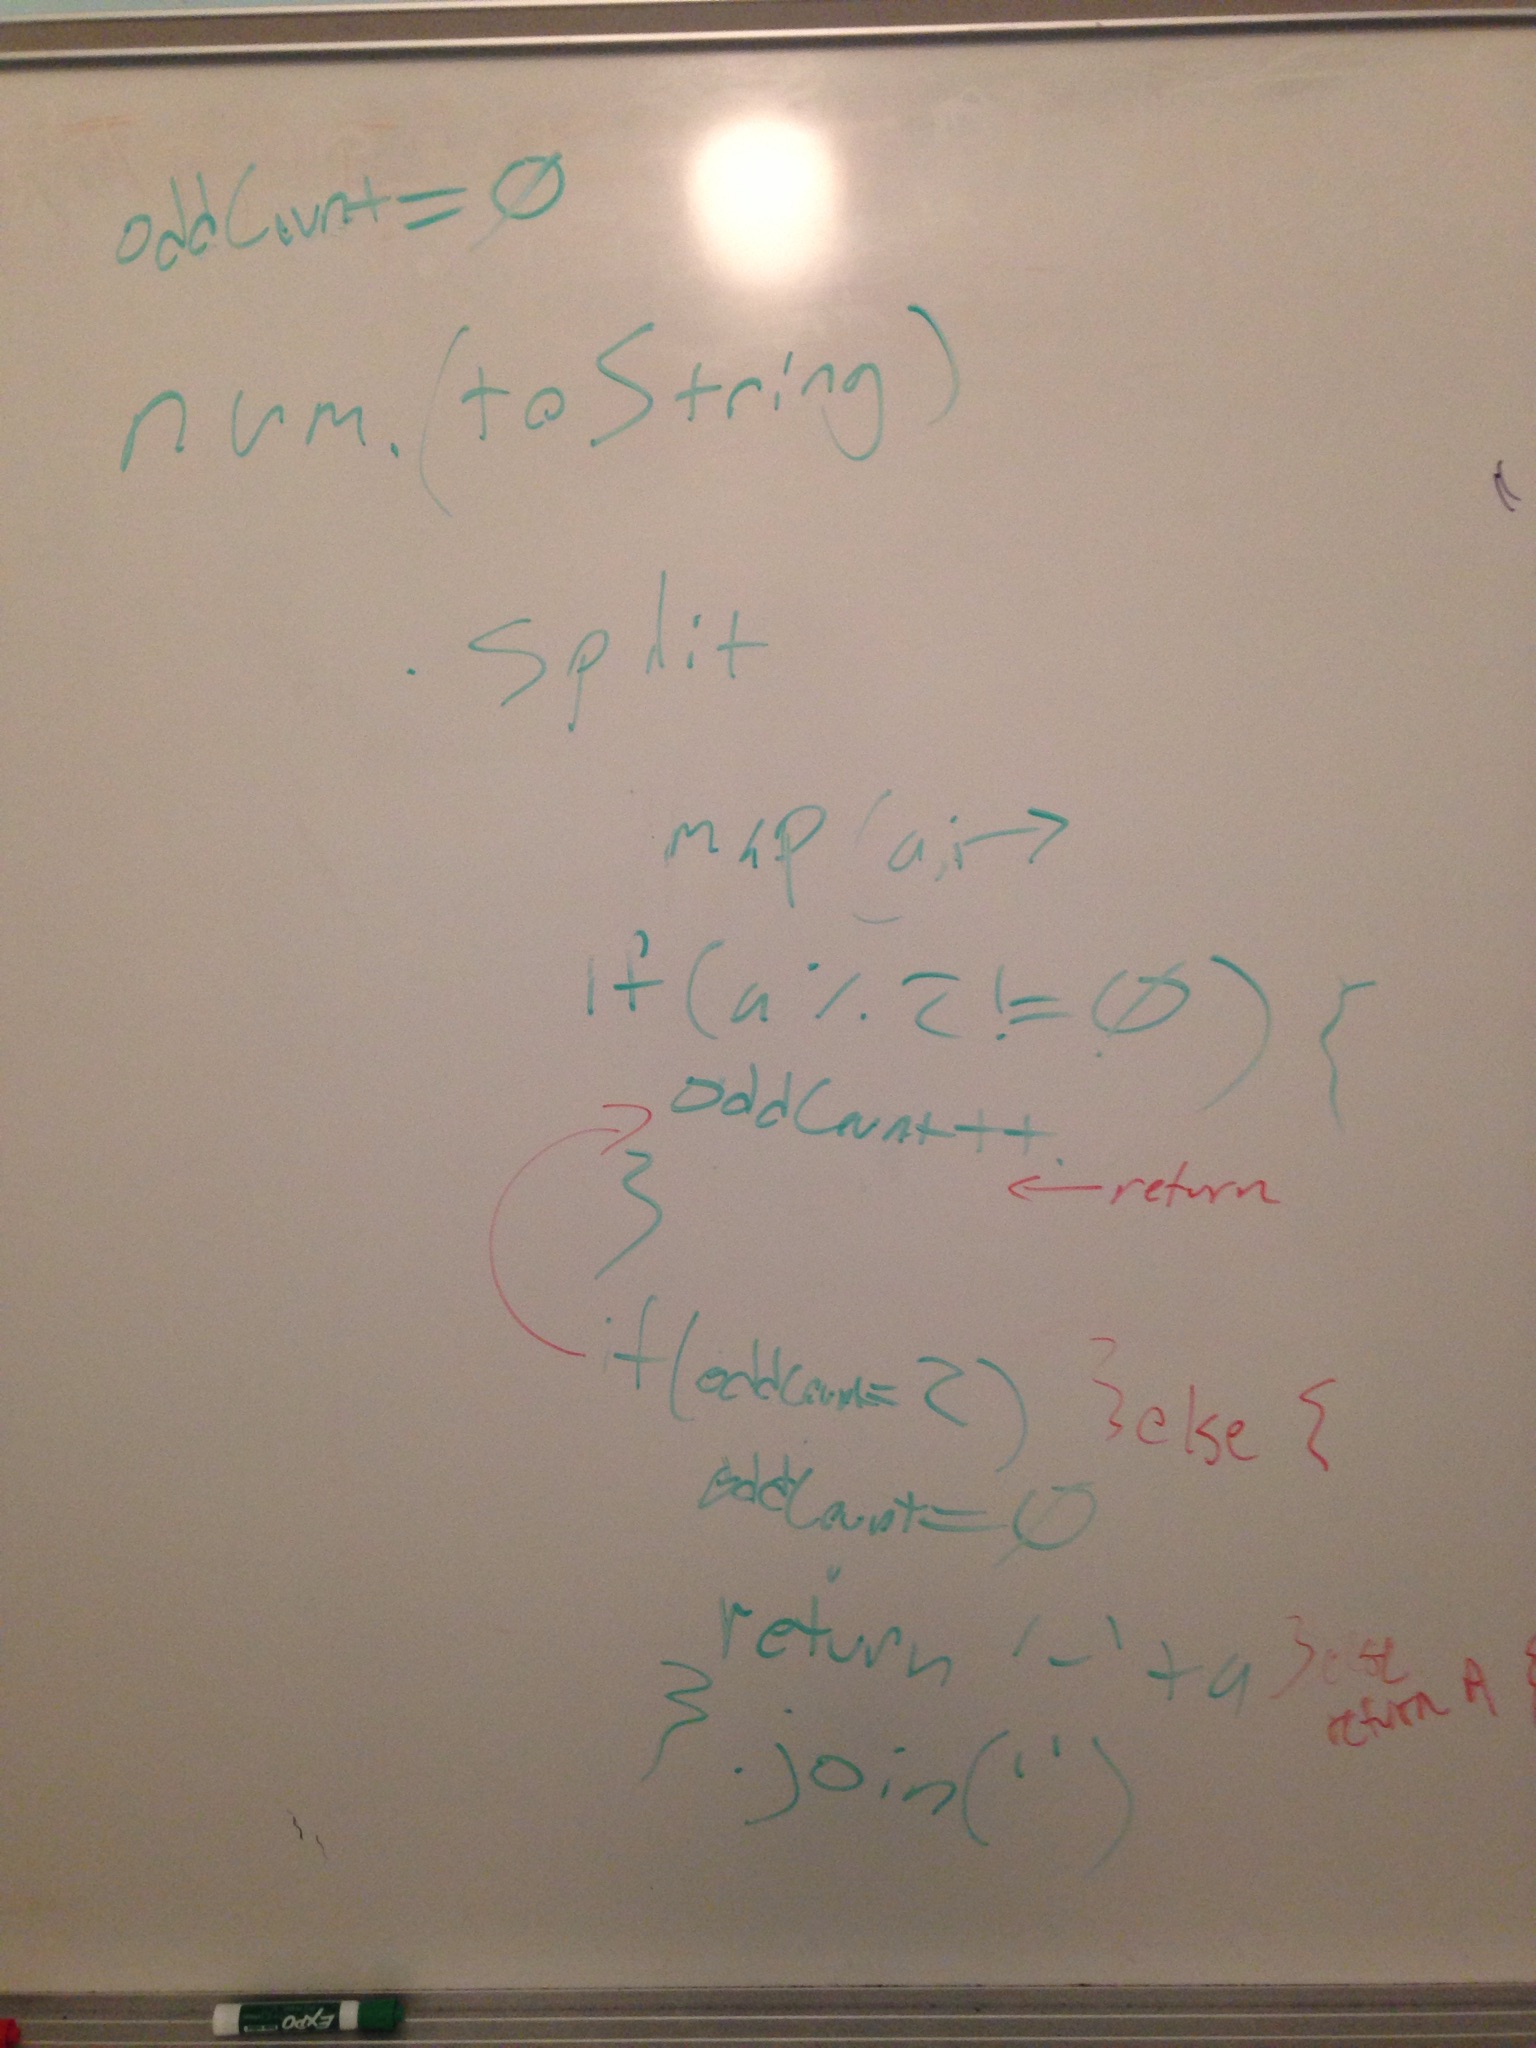 oddCount=0
num.(toString)
.split
map(a,i→
if(a%2!=0){
oddCount++
←return
}
if(oddCount=2) }else{
oddCount=0
return '-'+a }else
return A {
} .join('')
EXPO